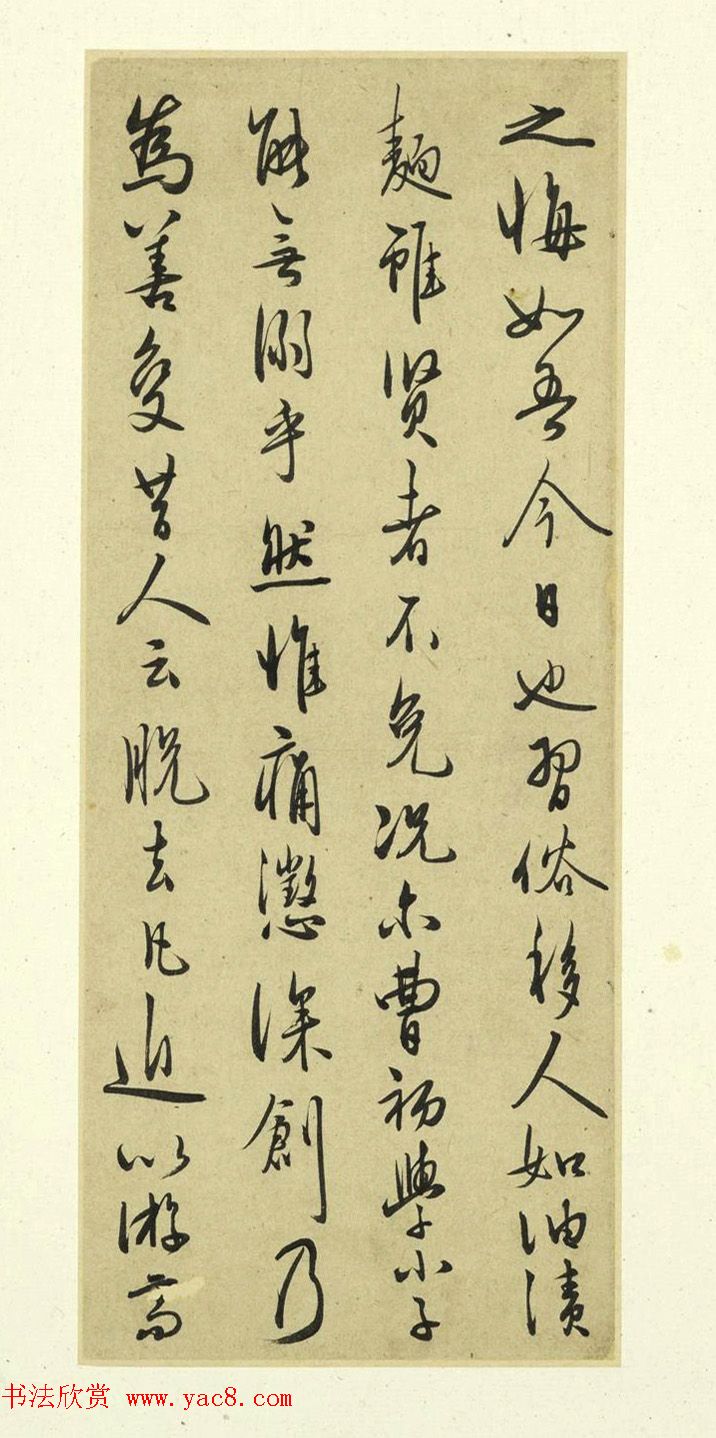 之悔如吾今日也習俗移人如油漬
麵雖賢者不免况尓曹初學小子
能無溺乎然惟痛懲深創乃
為善變昔人云脫去凡近以游高
书法欣赏 www.yac8.com